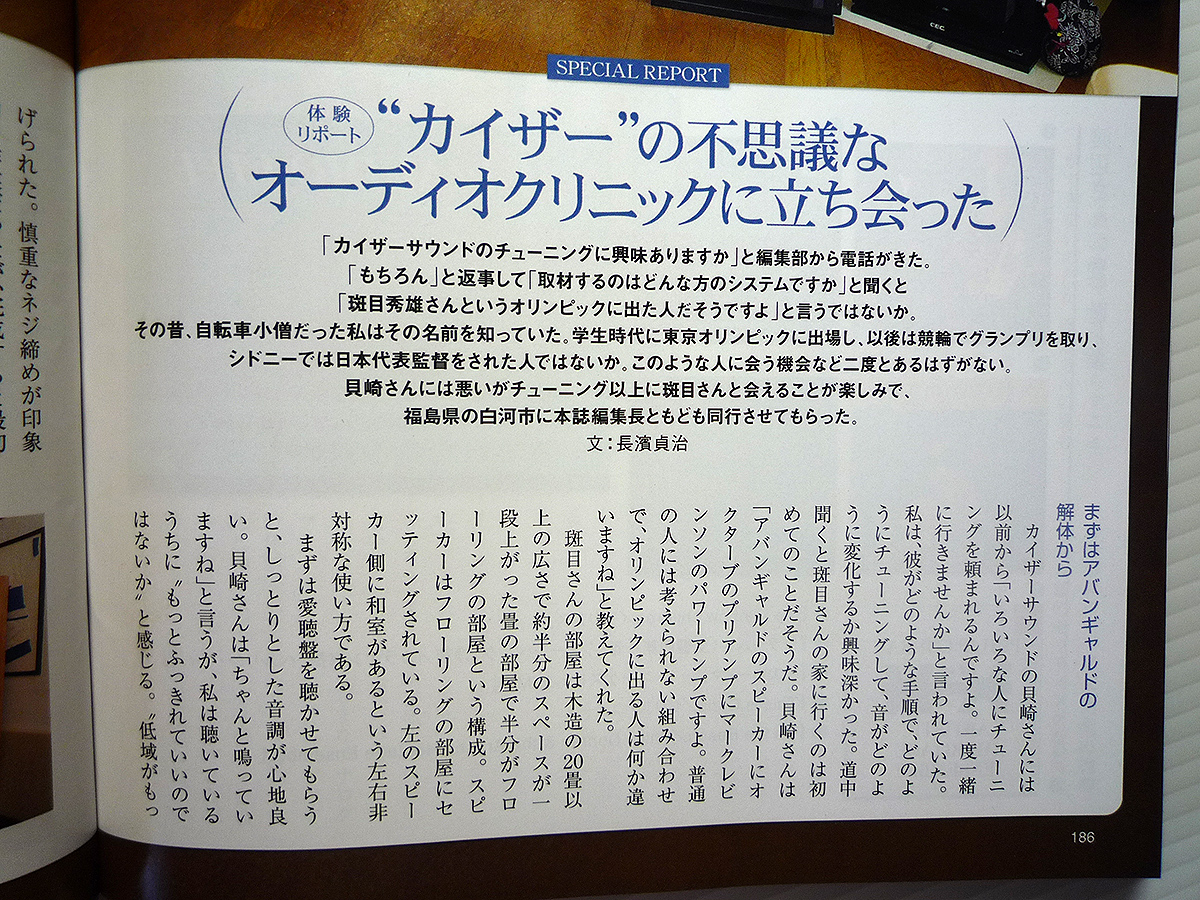 CEC
SPECIAL REPORT
体験
リポート
“カイザー”の不思議な
オーディオクリニックに立ち会った
「カイザーサウンドのチューニングに興味ありますか」と編集部から電話がきた。
「もちろん」と返事して「取材するのはどんな方のシステムですか」と聞くと
「斑目秀雄さんというオリンピックに出た人だそうですよ」と言うではないか。
その昔、自転車小僧だった私はその名前を知っていた。学生時代に東京オリンピックに出場し、以後は競輪でグランプリを取り、
シドニーでは日本代表監督をされた人ではないか。このような人に会う機会など二度とあるはずがない。
貝崎さんには悪いがチューニング以上に斑目さんと会えることが楽しみで、
福島県の白河市に本誌編集長ともども同行させてもらった。
文：長濱貞治
まずはアバンギャルドの
解体から
カイザーサウンドの貝崎さんには
以前から「いろいろな人にチューニ
ングを頼まれるんですよ。一度一緒
に行きませんか」と言われていた。
私は、彼がどのような手順で、どのよ
うにチューニングして、音がどのよ
うに変化するか興味深かった。道中
聞くと斑目さんの家に行くのは初
めてのことだそうだ。貝崎さんは
「アバンギャルドのスピーカーにオ
クターブのプリアンプにマークレビ
ンソンのパワーアンプですよ。普通
の人には考えられない組み合わせ
で、オリンピックに出る人は何か違
いますね」と教えてくれた。
斑目さんの部屋は木造の20畳以
上の広さで約半分のスペースが一
段上がった畳の部屋で半分がフロ
ーリングの部屋という構成。スピ
ーカーはフローリングの部屋にセ
ッティングされている。左のスピー
カー側に和室があるという左右非
対称な使い方である。
まずは愛聴盤を聴かせてもらう
と、しっとりとした音調が心地良
い。貝崎さんは「ちゃんと鳴ってい
ますね」と言うが、私は聴いている
うちに〝もっとふっきれていいので
はないか〟と感じる。〝低域がもっ
げられた。慎重なネジ締めが印象
186